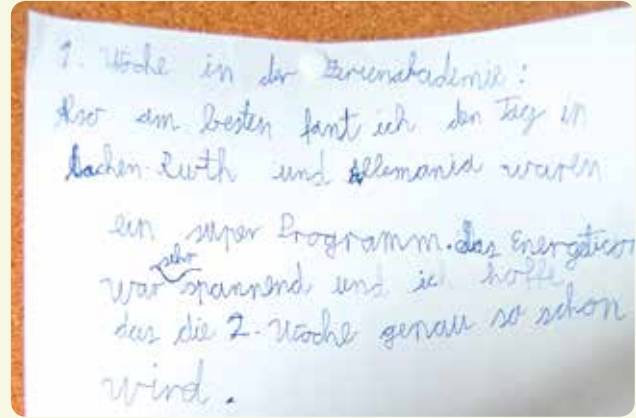 1. Woche in der Ferienakademie:
Also am besten fant ich den Tag in
Aachen. Ruth und Allemania waren
ein super Programm. das Energeticon
war sehr spannend und ich hoffe
das die 2. Woche genau so schon
wird.